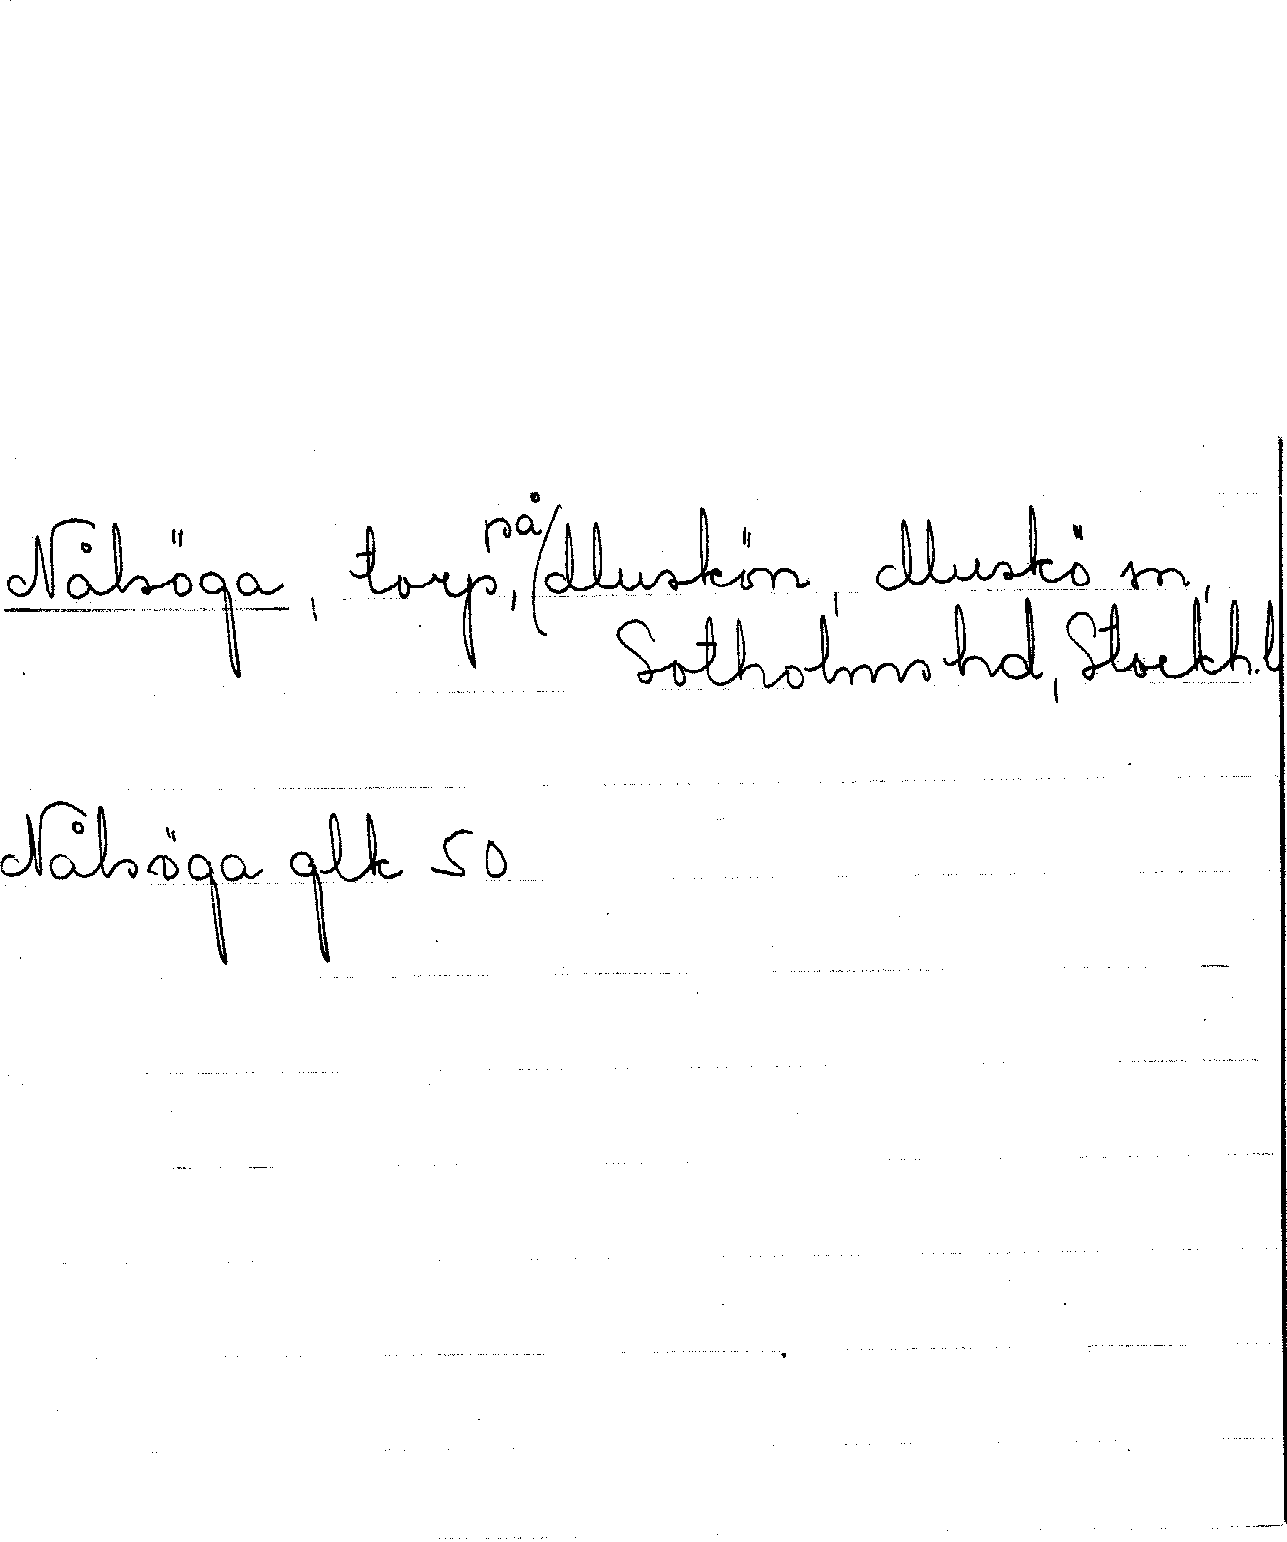 Nålsöga, torp, på Muskön, Muskö sn,
Sotholms hd, Stockh. l
Nålsöga glk 50